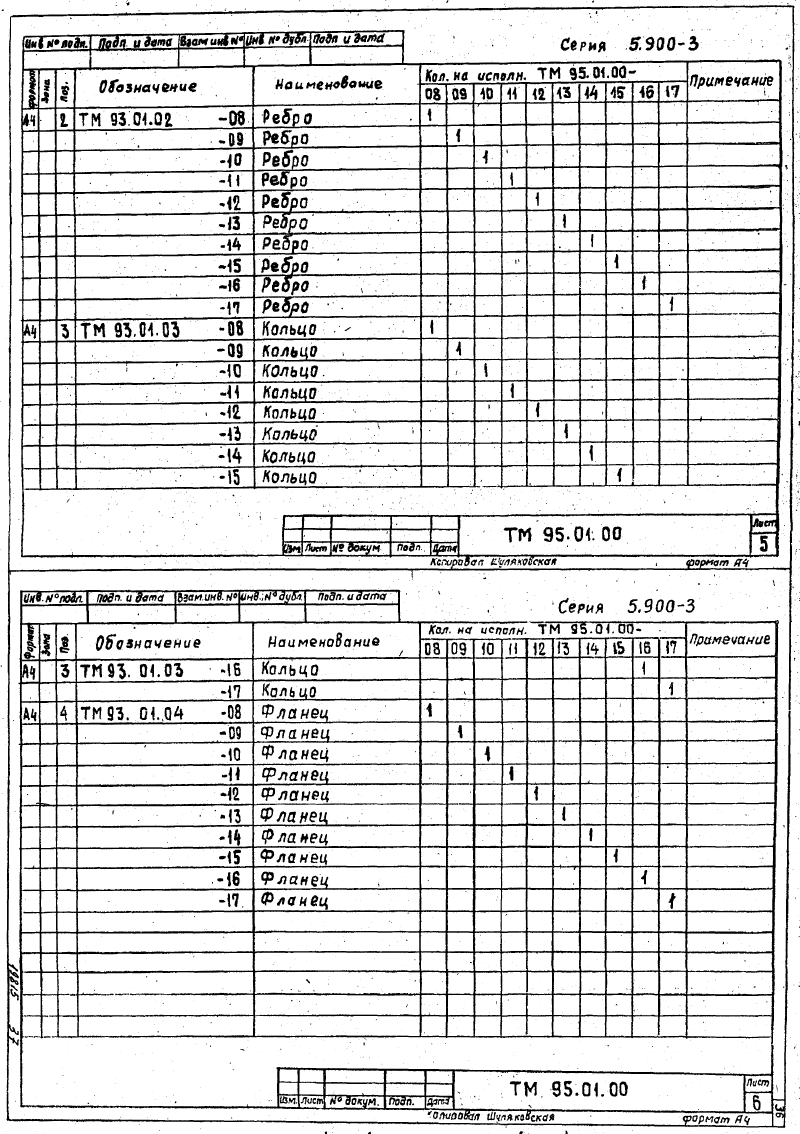 Инв № подл. Подп. и дата Взам инв № Инв № дубл Подп и дата
Серия 5.900-3
Формат Зона Поз. Обозначение Наименование Кол. на исполн. ТМ 95.01.00- Примечание
08 09 10 11 12 13 14 15 16 17
А4 2 ТМ 93.01.02 -08 Ребро 1
-09 Ребро 1
-10 Ребро 1
-11 Ребро 1
-12 Ребро 1
-13 Ребро 1
-14 Ребро 1
-15 Ребро 1
-16 Ребро 1
-17 Ребро 1
А4 3 ТМ 93.01.03 -08 Кольцо 1
-09 Кольцо 1
-10 Кольцо 1
-11 Кольцо 1
-12 Кольцо 1
-13 Кольцо 1
-14 Кольцо 1
-15 Кольцо 1
Изм. Лист № докум Подп. Дата ТМ 95.01.00 Лист 5
Копировал Шуляковская формат А4
Инв. № подл. Подп. и дата Взам. инв. № Инв. № дубл Подп. и дата
Серия 5.900-3
Формат Зона Поз. Обозначение Наименование Кол. на исполн. ТМ 95.01.00- Примечание
08 09 10 11 12 13 14 15 16 17
А4 3 ТМ 93.01.03 -16 Кольцо 1
-17 Кольцо 1
А4 4 ТМ 93.01.04 -08 Фланец 1
-09 Фланец 1
-10 Фланец 1
-11 Фланец 1
-12 Фланец 1
-13 Фланец 1
-14 Фланец 1
-15 Фланец 1
-16 Фланец 1
-17 Фланец 1
37
Изм. Лист № докум. Подп. Дата ТМ 95.01.00 Лист 6
36
Копировал Шуляковская формат А4